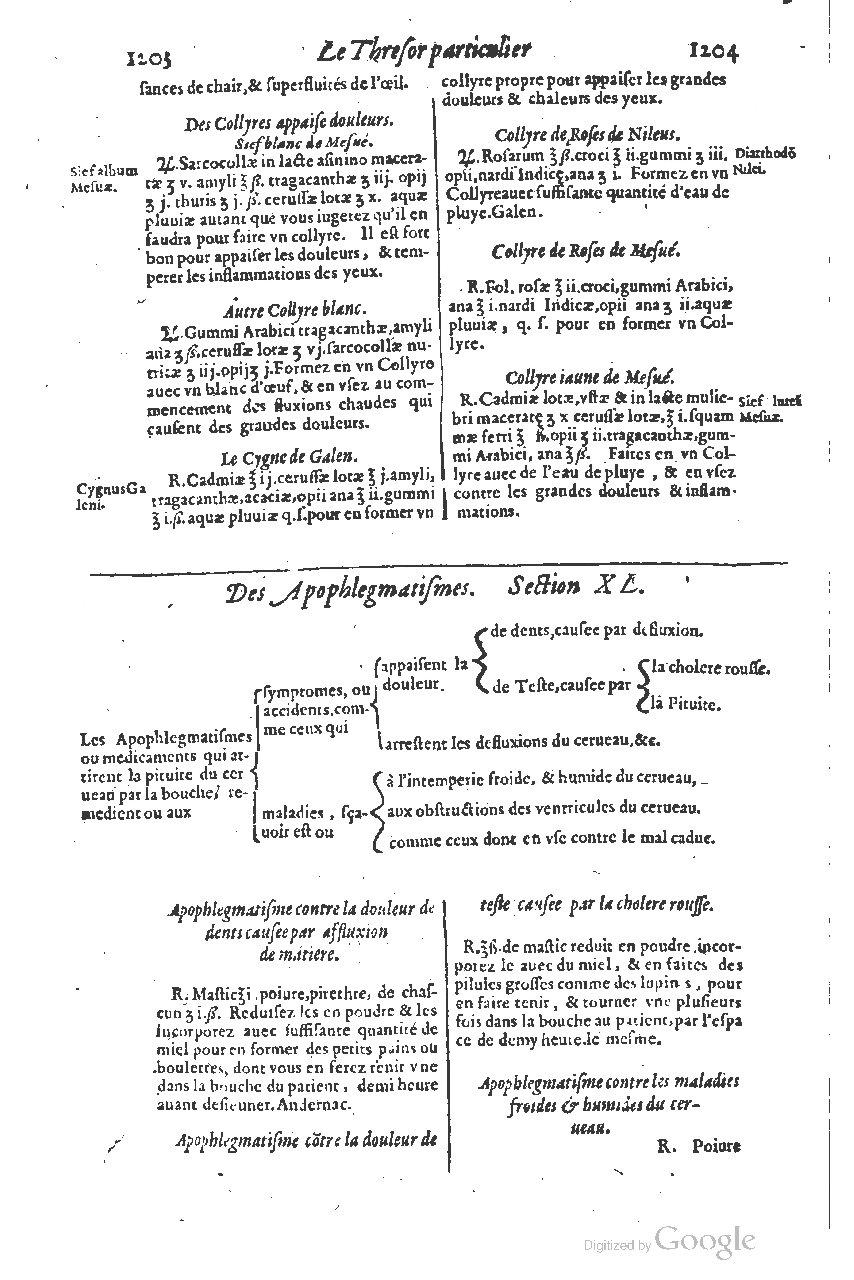 1203
Le Thresor particulier
1204
sances de chair,& superfluités de l'œil.
Des Collyres appaise douleurs.
Sief blanc de Mesué.
Sief album
Mesuæ.
♃.Sarcocollæ in lacte asinino macera-
tæ ʒ v. amyli ℥ ß. tragacanthæ ʒ iij. opij
ʒ j. thuris ʒ j. ß. cerussæ lotæ ʒ x. aquæ
pluuiæ autant que vous iugerez qu'il en
faudra pour faire vn collyre. Il est fort
bon pour appaiser les douleurs, & tem-
perer les inflammations des yeux.
Autre Collyre blanc.
♃.Gummi Arabici tragacanthæ,amyli
ana ʒ ß.cerussæ lotæ ʒ vj.sarcocollæ nu-
tritæ ʒ iij.opij ʒ j.Formez en vn Collyre
auec vn blanc d'œuf, & en vsez au com-
mencement des fluxions chaudes qui
causent des graudes douleurs.
Le Cygne de Galen.
CygnusGa
leni.
R.Cadmiæ ℥ ij.cerussæ lotæ ℥ j.amyli,
tragacanthæ,acaciæ,opii ana ʒ ii.gummi
ʒ i.ß.aquæ pluuiæ q.s.pour en former vn
collyre propre pour appaiser les grandes
douleurs & chaleurs des yeux.
Collyre de Roses de Nileus.
♃.Rosarum ℥ ß.croci ʒ ii.gummi ʒ iii.
opii,nardi Indicę,ana ʒ i. Formez en vn
Collyre auec suffisante quantité d'eau de
pluye.Galen.
Diarrhodō
Nilei.
Collyre de Roses de Mesué.
R.Fol. rosæ ℥ ii.croci,gummi Arabici,
ana ℥ i.nardi Indicæ,opii ana ʒ ii.aquæ
pluuiæ, q. s. pour en former vn Col-
lyre.
Collyre iaune de Mesué.
R.Cadmiæ lotæ,vstæ & in lacte mulie-
bri maceratę ʒ x cerussæ lotæ,℥ i.squam
mæ ferri ℥ ß.opii ʒ ii.tragacanthæ,gum-
mi Arabici, ana ℥ ß. Faites en vn Col-
lyre auec de l'eau de pluye, & en vsez
contre les grandes douleurs & inflam-
mations.
Sief
Mesuæ.
Des Apophlegmatismes. Section XL.
Les Apophlegmatismes
ou medicaments qui at-
tirent la pituite du cer
ueau par la bouche, re-
medient ou aux
symptomes, ou
accidents,com-
me ceux qui
appaisent la
douleur.
de dents,causee par defluxion.
de Teste,causee par
la cholere rousse.
la Pituite.
arrestent les defluxions du cerueau,&c.
maladies, sça-
uoir est ou
à l'intemperie froide, & humide du cerueau,
aux obstructions des ventricules du cerueau.
comme ceux dont en vse contre le mal caduc.
Apophlegmatisme contre la douleur de
dents causee par affluxion
de matiere.
R. Mastic ℥ i.poiure,pirethre, de chas-
cun ʒ i.ß. Reduisez les en poudre & les
incorporez auec suffisante quantité de
miel pour en former des petits pains ou
boulettes, dont vous en ferez tenir vne
dans la bouche du patient, demi heure
auant desieuner.Andernac.
Apophlegmatisme cōtre la douleur de
teste causee par la cholere rousse.
R.℥ß.de mastic reduit en poudre,incor-
porez le auec du miel, & en faites des
pilules grosses comme des lupins, pour
en faire tenir, & tourner vne plusieurs
fois dans la bouche au patient,par l'espa
ce de demy heure.le mesme.
Apophlegmatisme contre les maladies
froides & humides du cer-
ueau.
R. Poiure
Digitized by Google